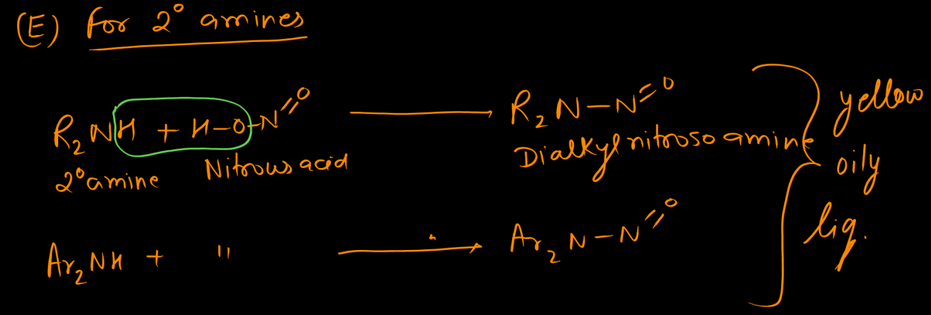 (E) For 2° amines
R₂NH + H-O-N=O → R₂N-N=O
2° amine Nitrous acid Dialkyl nitrosoamine
Ar₂NH + " → Ar₂N-N=O
yellow
oily
liq.